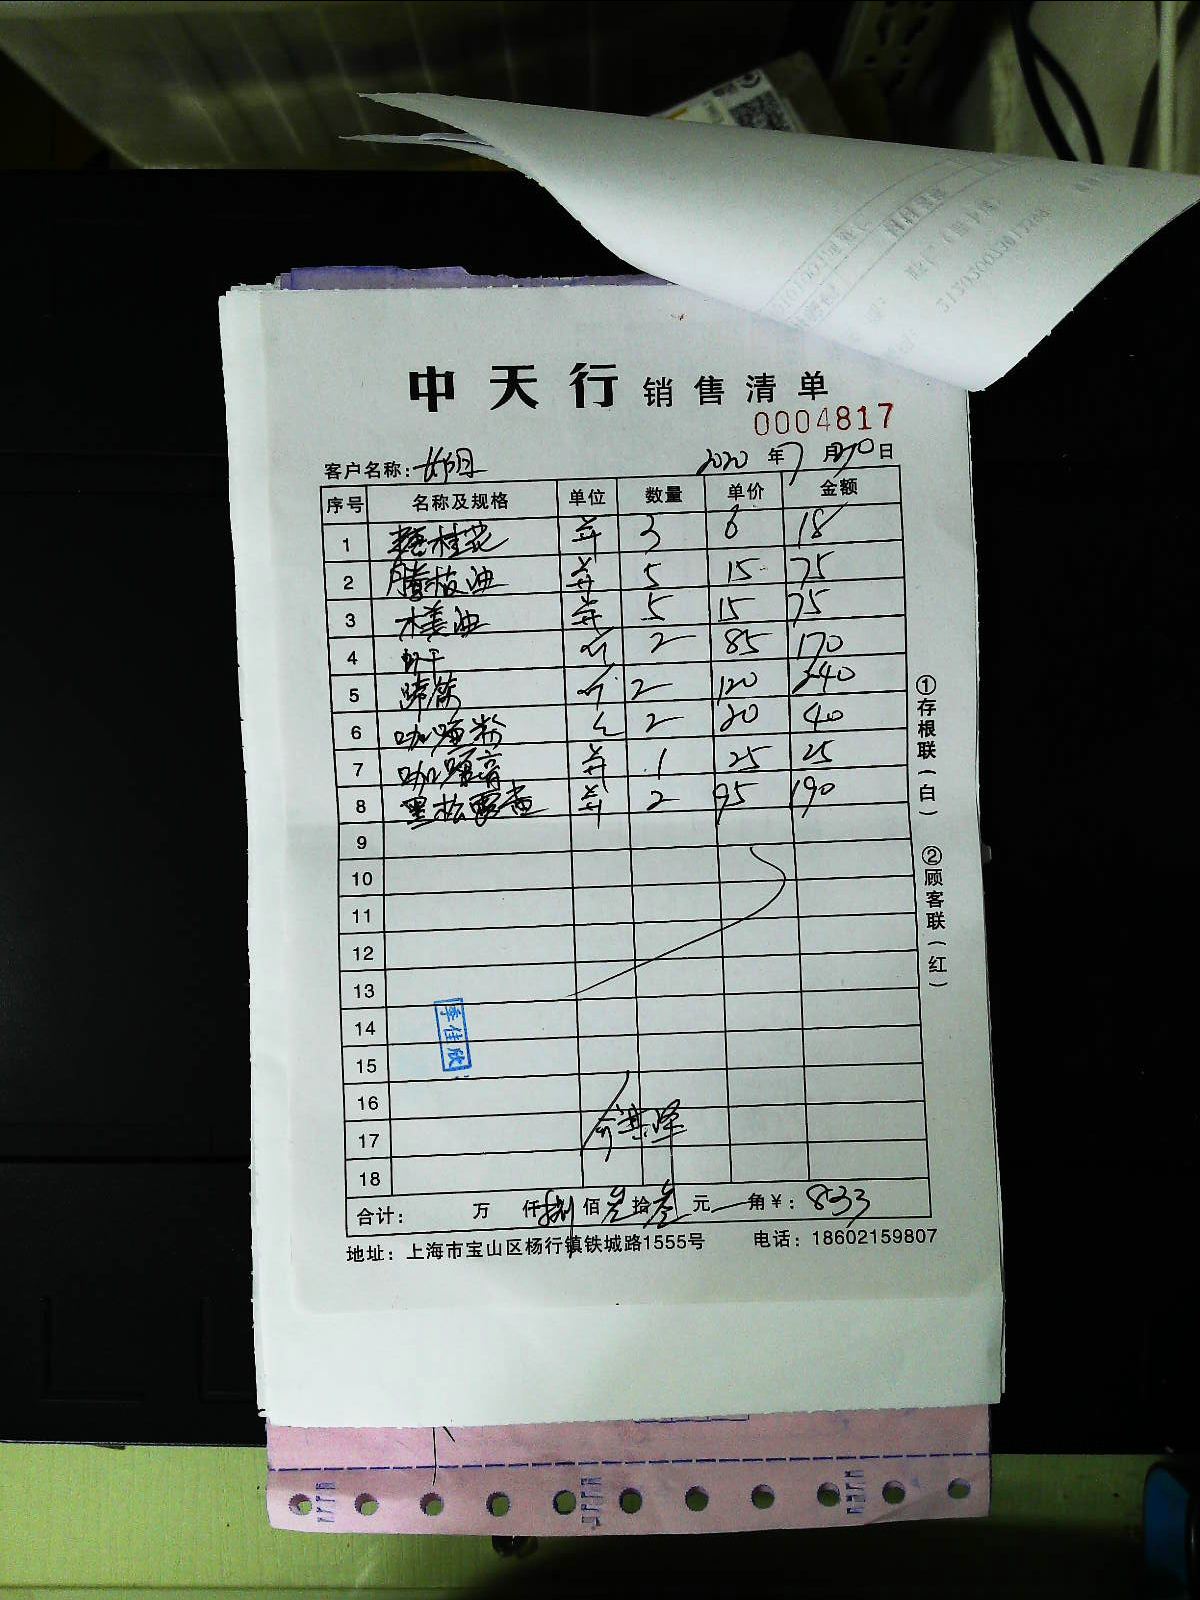 中天行 销售清单
0004817
客户名称: 2020 年 7 月 30 日
序号 名称及规格 单位 数量 单价 金额
1 糖桂花 并 3 6 18
2 藤枝油 并 5 15 75
3 木姜油 并 5 15 75
4 虾干 斤 2 85 170
5 蹄筋 斤 2 120 240
6 咖喱粉 2 20 40
7 咖喱膏 并 1 25 25
8 黑松露 并 2 95 190
9
10
11
12
13
14
15
16
17
18
季佳欣
合计: 万 仟 捌 佰 叁 拾 叁 元 角 ¥: 833
地址: 上海市宝山区杨行镇铁城路1555号 电话: 18602159807
①存根联(白)
②顾客联(红)